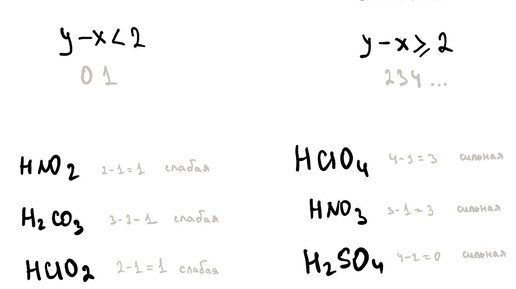 y-x<2
0 1
HNO2 2-1=1 слабая
H2CO3 3-2-1 слабая
HClO2 2-1=1 слабая
y-x⩾2
2 3 4 ...
HClO4 4-1=3 сильная
HNO3 3-1=3 сильная
H2SO4 4-2=0 сильная